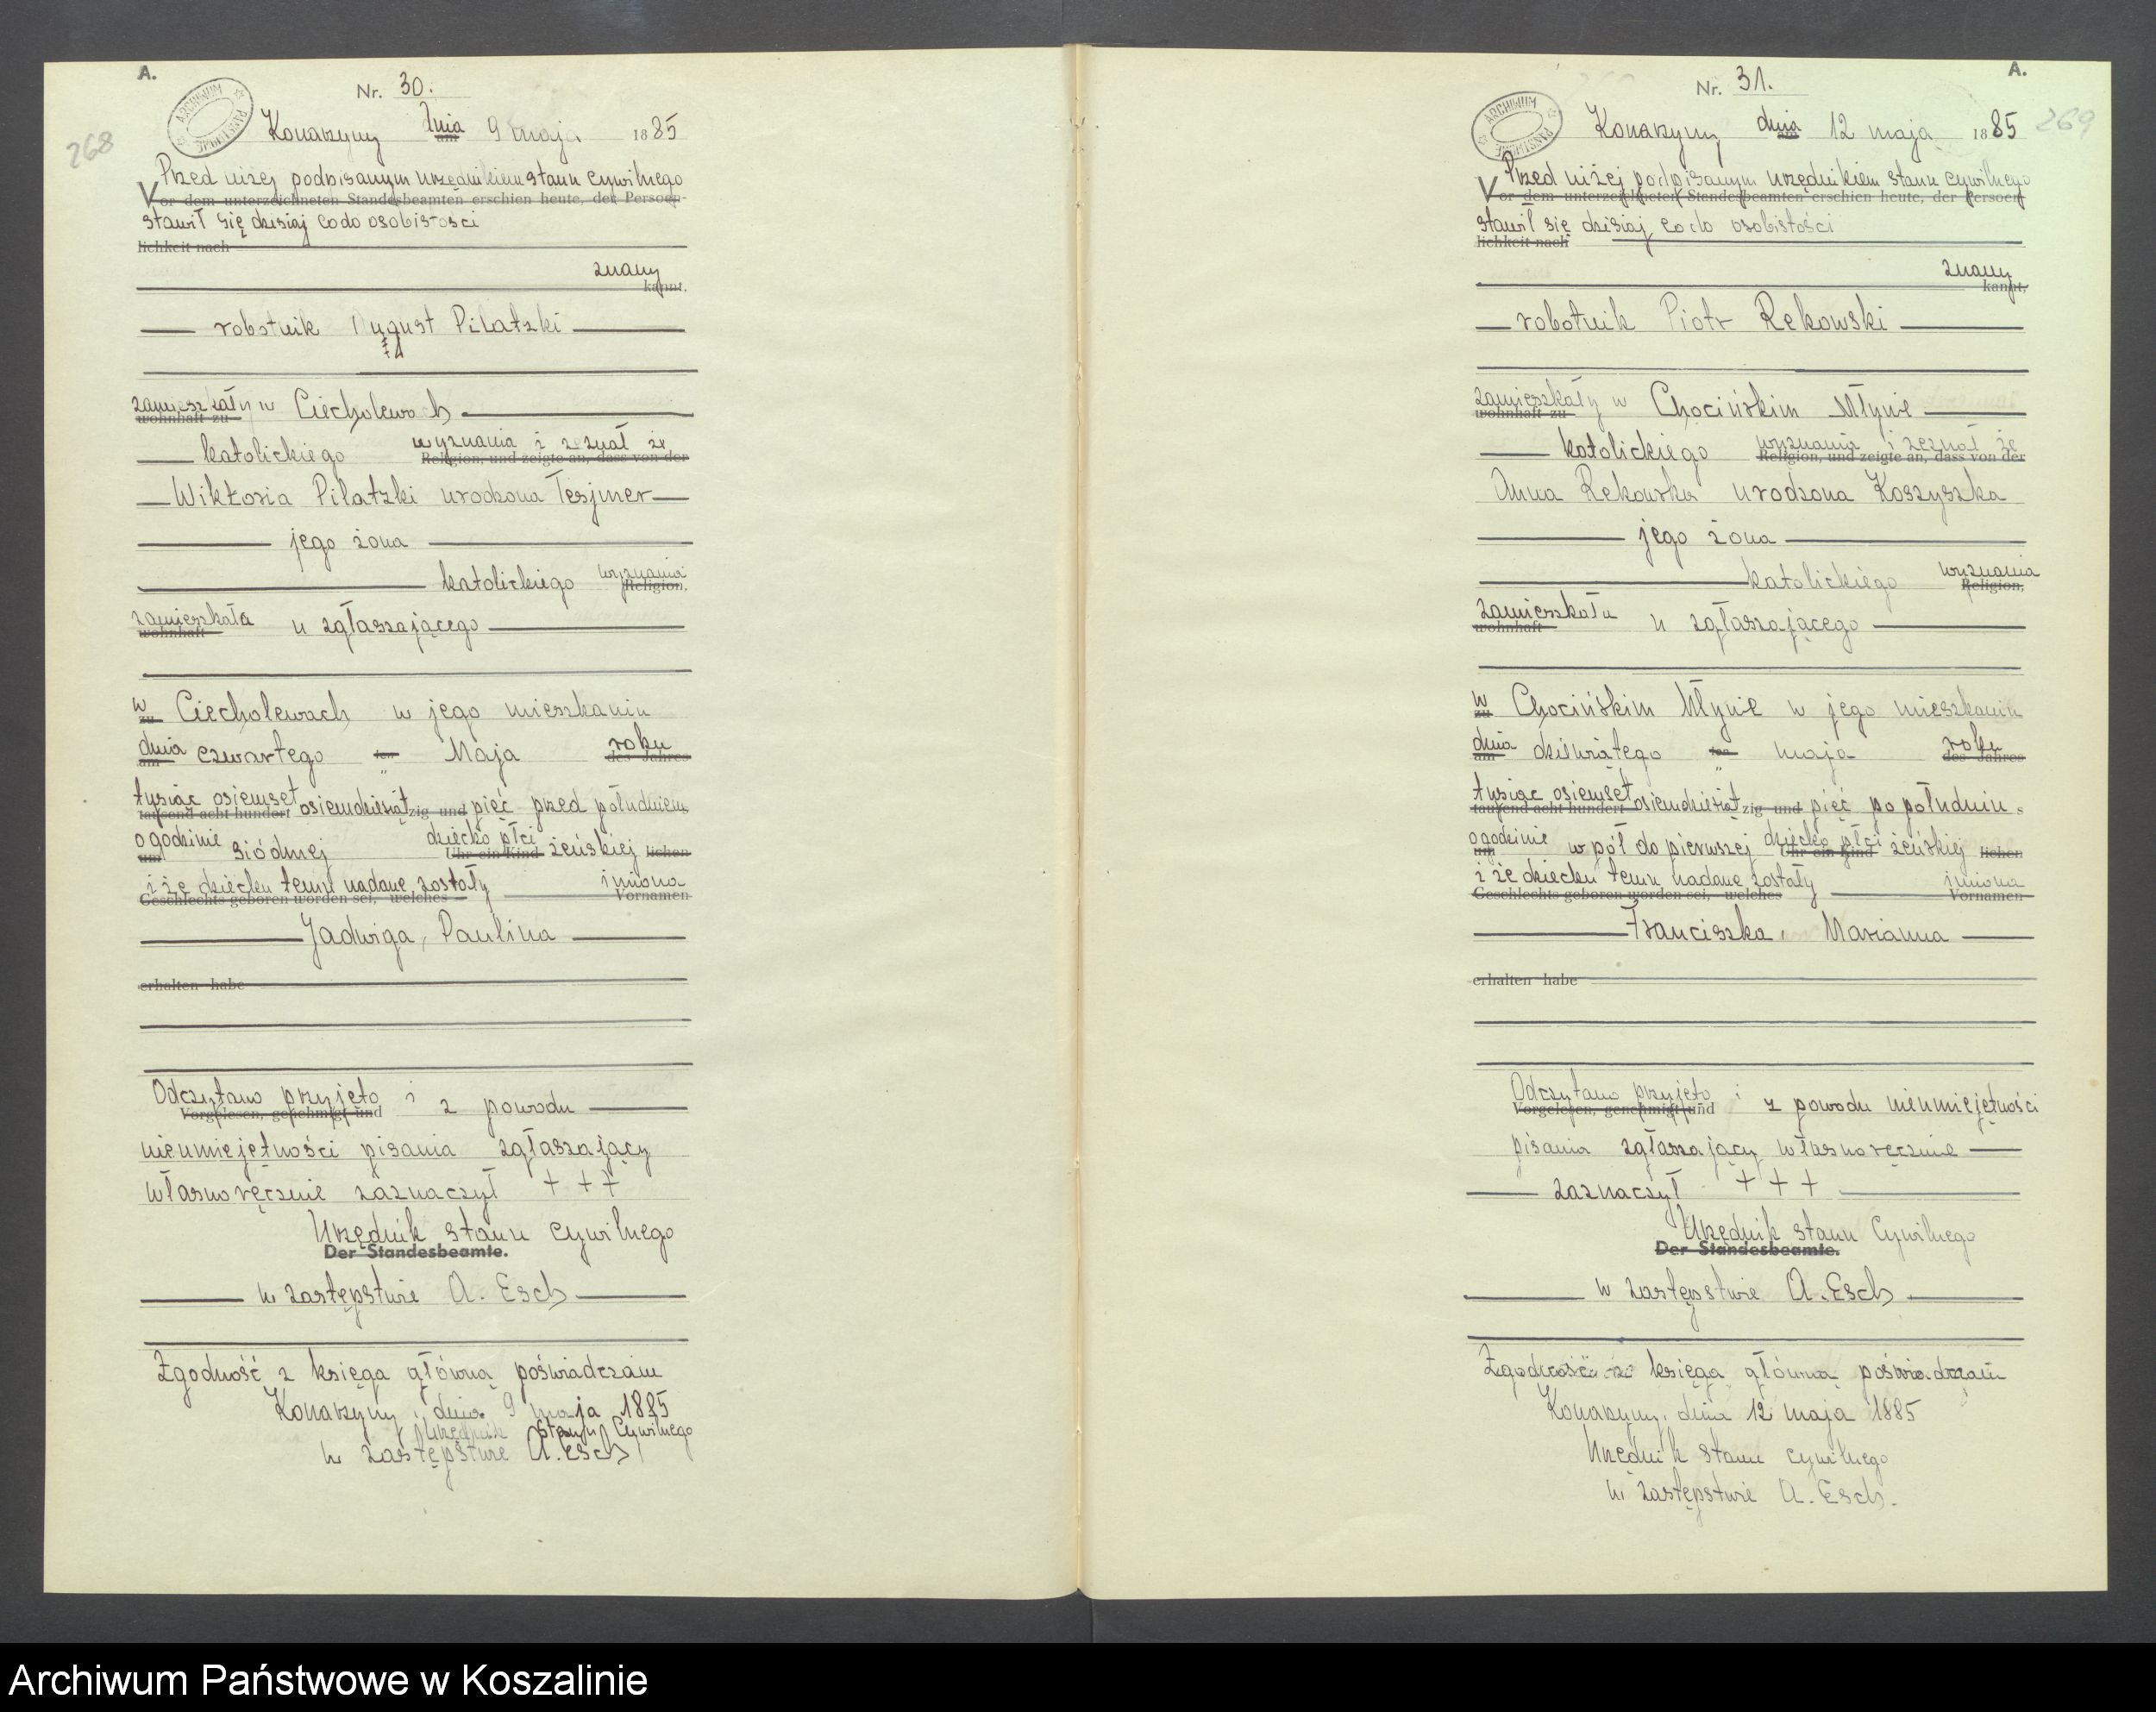 A.
ARCHIWUM PAŃSTWOWE
Nr. 30.
268
Konarzyny dnia am 9 maja 1885
Przed niżej podpisanym urzędnikiem stanu cywilnego
Vor dem unterzeichneten Standesbeamten erschien heute, der Persoen-
stawił się dzisiaj co do osobistości
lichkeit nach
znany
kannt,
robotnik August Pilatzki
zamieszkały w Ciecholewach
wohnhaft zu
katolickiego wyznania i zeznał że
Religion, und zeigte an, dass von der
Wiktoria Pilatzki urodzona Tesjmer
jego żona
katolickiego wyznania
Religion,
zamieszkała u zgłaszającego
wohnhaft
w Ciecholewach w jego mieszkaniu
zu
dnia czwartego ten Maja roku
am des Jahres
tysiąc osiemset osiemdziesiąt zig und pięć przed południem
tausend acht hundert
o godzinie siódmej dziecko płci żeńskiej lichen
um Uhr ein Kind
i że dziecku temu nadane zostały imiona
Geschlechts geboren worden sei, welches Vornamen
Jadwiga, Paulina
erhalten habe
Odczytano przyjęto i z powodu
Vorgelesen, genehmigt und
nieumiejętności pisania zgłaszający
własnoręcznie zaznaczył + + +
Urzędnik stanu cywilnego
Der Standesbeamte.
w zastępstwie A. Esch
Zgodność z księgą główną poświadczam
Konarzyny, dnia 9 maja 1885
Urzędnik Stanu Cywilnego
w zastępstwie A. Esch
A.
ARCHIWUM PAŃSTWOWE
Nr. 31.
269
Konarzyny dnia 12 maja 1885
Przed niżej podpisanym urzędnikiem stanu cywilnego
Vor dem unterzeichneten Standesbeamten erschien heute, der Persoen-
stawił się dzisiaj co do osobistości
lichkeit nach
znany
kannt,
robotnik Piotr Rekowski
zamieszkały w Chocińskim Młynie
wohnhaft zu
katolickiego wyznania i zeznał że
Religion, und zeigte an, dass von der
Anna Rekowska urodzona Koszyszka
jego żona
katolickiego wyznania
Religion,
zamieszkała u zgłaszającego
wohnhaft
w Chocińskim Młynie w jego mieszkaniu
zu
dnia dziewiątego ten maja roku
am des Jahres
tysiąc osiemset osiemdziesiąt zig und pięć po południu s
tausend acht hundert
o godzinie w pół do pierwszej dziecko płci żeńskiej lichen
um Uhr ein Kind
i że dziecku temu nadane zostały imiona
Geschlechts geboren worden sei, welches Vornamen
Franciszka, Marianna
erhalten habe
Odczytano przyjęto i z powodu nieumiejętności
Vorgelesen, genehmigt und
pisania zgłaszający własnoręcznie
zaznaczył + + +
Urzędnik stanu Cywilnego
Der Standesbeamte.
w zastępstwie A. Esch
Zgodność z księgą główną poświadczam
Konarzyny, dnia 12 maja 1885
Urzędnik stanu cywilnego
w zastępstwie A. Esch.
Archiwum Państwowe w Koszalinie